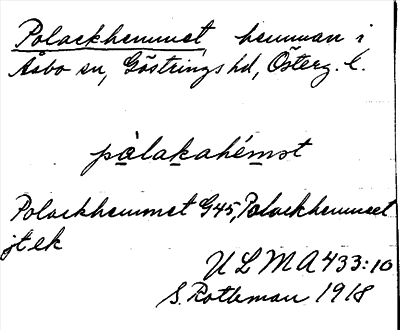 Polackhemmet, hemman i
Åsbo sn, Göstrings hd, Österg. l.
pålakahémot
Polackhemmet G45, Polackhemmet
jt ek
ULMA 433:10
S. Rothman 1918